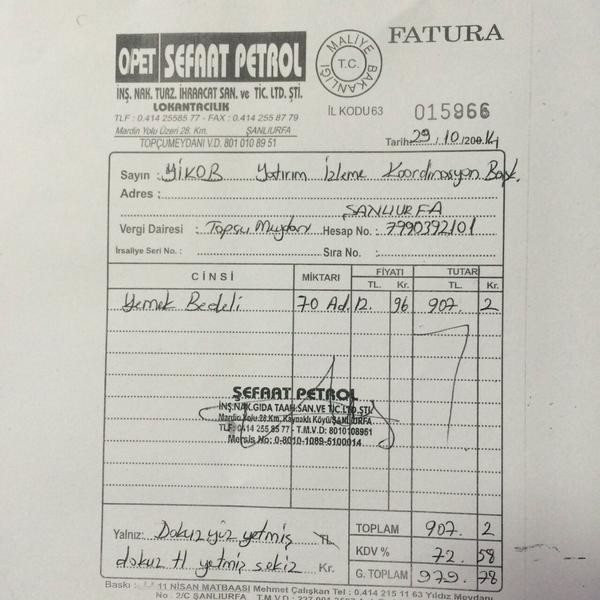 OPET ŞEFAAT PETROL
İNŞ. NAK. TURZ. İHRACAT SAN. ve TİC. LTD. ŞTİ.
LOKANTACILIK
TLF : 0.414 25585 77 - FAX : 0.414 255 87 79
Mardin Yolu Üzeri 28. Km. ŞANLIURFA
TOPÇUMEYDANI V.D. 801 010 89 51
MALİYE BAKANLIĞI
T.C.
FATURA
İL KODU 63 015966
Tarih: 29 / 10 / 2014
Sayın : YİKOB Yatırım İzleme Koordinasyon Başk.
Adres :
ŞANLIURFA
Vergi Dairesi : Topçu Meydanı Hesap No. : 7990392101
İrsaliye Seri No. : Sıra No. :
CİNSİ MİKTARI FİYATI TUTARI
TL. Kr. TL. Kr.
Yemek Bedeli 70 Ad. 12. 96 907. 2
ŞEFAAT PETROL
İNŞ.NAK.GIDA TAAH.SAN.VE TİC.LTD.ŞTİ.
Mardin Yolu 28.Km. Kaynaklı Köyü/ŞANLIURFA
TLF: 0414 255 85 77 - T.M.V.D: 8010108951
Mersis No: 0-8010-1089-5100014
Yalnız: Dokuz yüz yetmiş TL
dokuz tl yetmiş sekiz Kr.
TOPLAM 907. 2
KDV % 72. 58
G. TOPLAM 979. 78
Baskı : 11 NİSAN MATBAASI Mehmet Çalışkan Tel : 0.414 215 11 63 Yıldız Meydanı
No : 2/C ŞANLIURFA T.M.V.D :